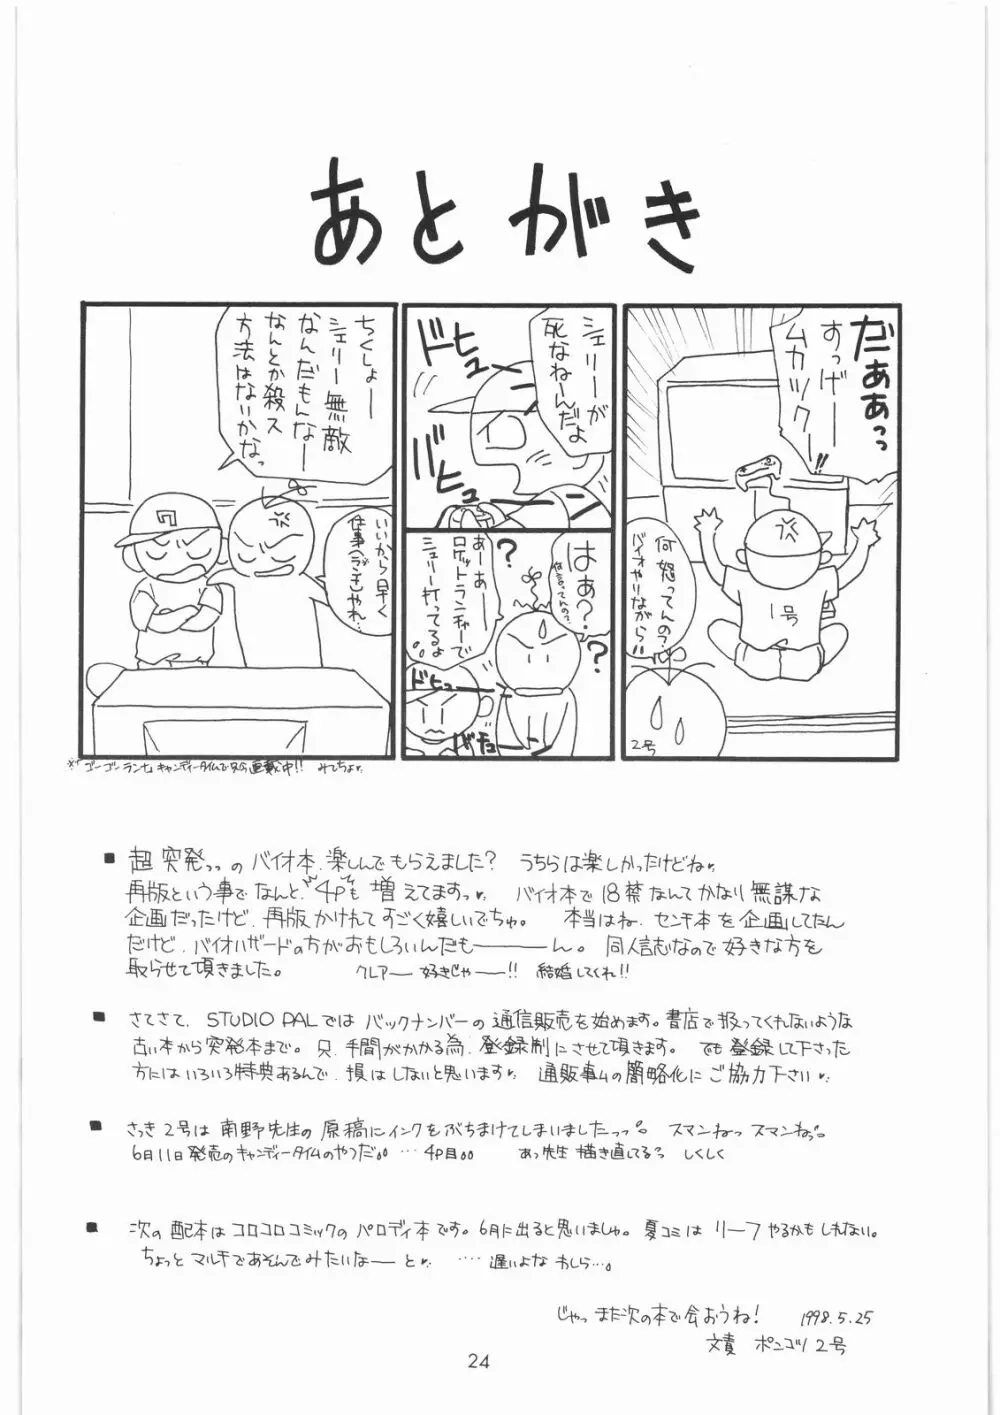 あとがき
だぁぁっ
すっげー
ムカックー!!
何怒ってんの?
バイオやりながら!!
1号
2号
シェリーが
死なねーんだよ
ドヒュー
バヒュ
はぁ?
?
?
あーあー
ロケットランチャーで
シェリー打ってるよ
ドヒュー
バキューン
ちくしょー
シェリー無敵
なんだもんなー
なんとか殺ス
方法はないかなっ
いいから早く
仕事
やれ…
ゴーゴー
キャンディータイムで
連載中!! みてちょ
■ 超突発っっのバイオ本、楽しんでもらえました? うちらは楽しかったけどね
再版という事でなんと、4Pも増えてますっ バイオ本で18禁なんてかなり無謀な
企画だったけど、再版かけれてすごく嬉しいでちゅ。 本当はね、センチ本を企画してたん
だけど、バイオハザードの方がおもしろいんだも―――ん。同人誌なので好きな方を
取らせて頂きました。 クレアー 好きじゃー!! 結婚してくれ!!
■ さてさて、STUDIO PALではバックナンバーの通信販売を始めます。書店で扱ってくれないような
古い本から突発本まで。只、手間がかかる為、登録制にさせて頂きます。でも登録して下さった
方にはいろいろ特典あるんで、損はしないと思います 通販事ムの簡略化にご協力下さい
■ さっき2号は南野先生の原稿にインクをぶちまけてしまいましたっっ。 スマンねっスマンねっ。
6月11日発売のキャンディータイムのやつだ。。…4P目。。 あっ先生描き直してるっ しくしく
■ 次の配本はコロコロコミックのパロディ本です。6月に出ると思いましゅ。夏コミはリーフやるかもしれない。
ちょっとマルチであそんでみたいなーと ‥‥遅いよなわしら…。
じゃっまた次の本で会おうね! 1998.5.25
文責 ポンコツ2号
24